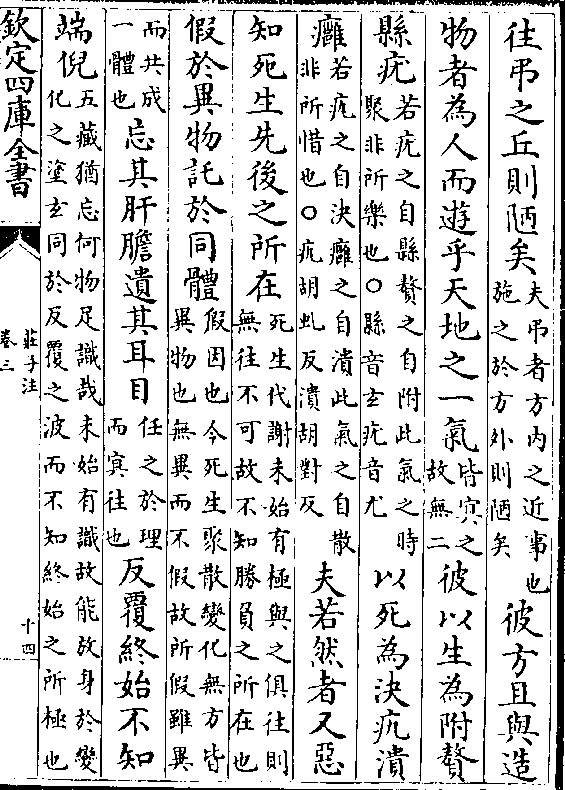 往弔之丘則陋矣夫弔者方内之近事也施之於方外則陋矣彼方且與造
物者為人而遊乎天地之一氣皆㝠之故無二彼以生為附贅
縣疣若疣之自縣贅之自附此氣之時聚非所樂也○縣音玄疣音尤以死為決𤴯潰
癰若疣之自決癰之自潰此氣之自散非所惜也○疣胡虬反潰胡對反夫若然者又惡
知死生先後之所在死生代謝未始有極與之俱往則無往不可故不知勝負之所在也
假於異物託於同體假因也今死生聚散變化無方皆異物也無異而不假故所假雖異
而共成一體也忘其肝膽遺其耳目任之於理而㝠往也反覆終始不知
端倪五藏猶忘何物足識哉未始有識故能放身於變化之塗玄同於反覆之波而不知終始之所極也
欽定四庫全書
莊子注
卷三
十四